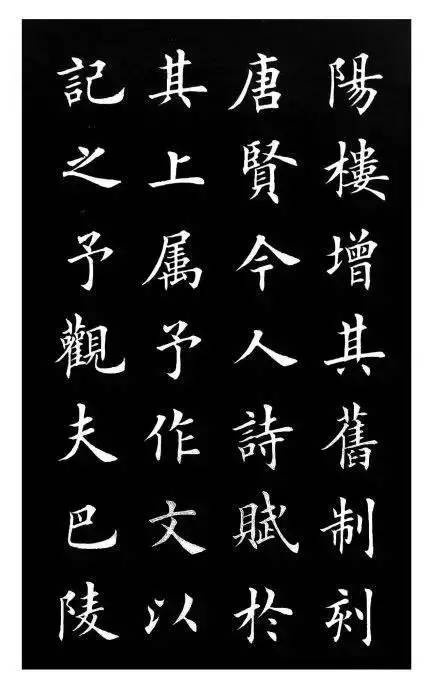 陽樓增其舊制刻
唐賢今人詩賦於
其上属予作文以
記之予觀夫巴陵